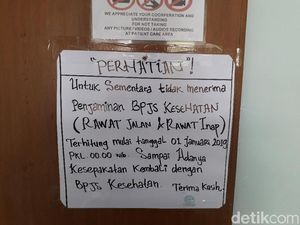 WE APPRECIATE YOUR COOPERATION AND
UNDERSTANDING
FOR NOT TAKING
ANY PICTURE/VIDEOS/AUDIOS RECORDING
AT PATIENT CARE AREA
"PERHATIAN"!
Untuk Sementara tidak menerima
Penjaminan BPJS KESEHATAN
(RAWAT JALAN & RAWAT INAP)
Terhitung mulai tanggal 01 Januari 2019
PKL 00.00 WIB Sampai Adanya
Kesepakatan Kembali dengan
BPJS Kesehatan. Terima Kasih.
detikcom